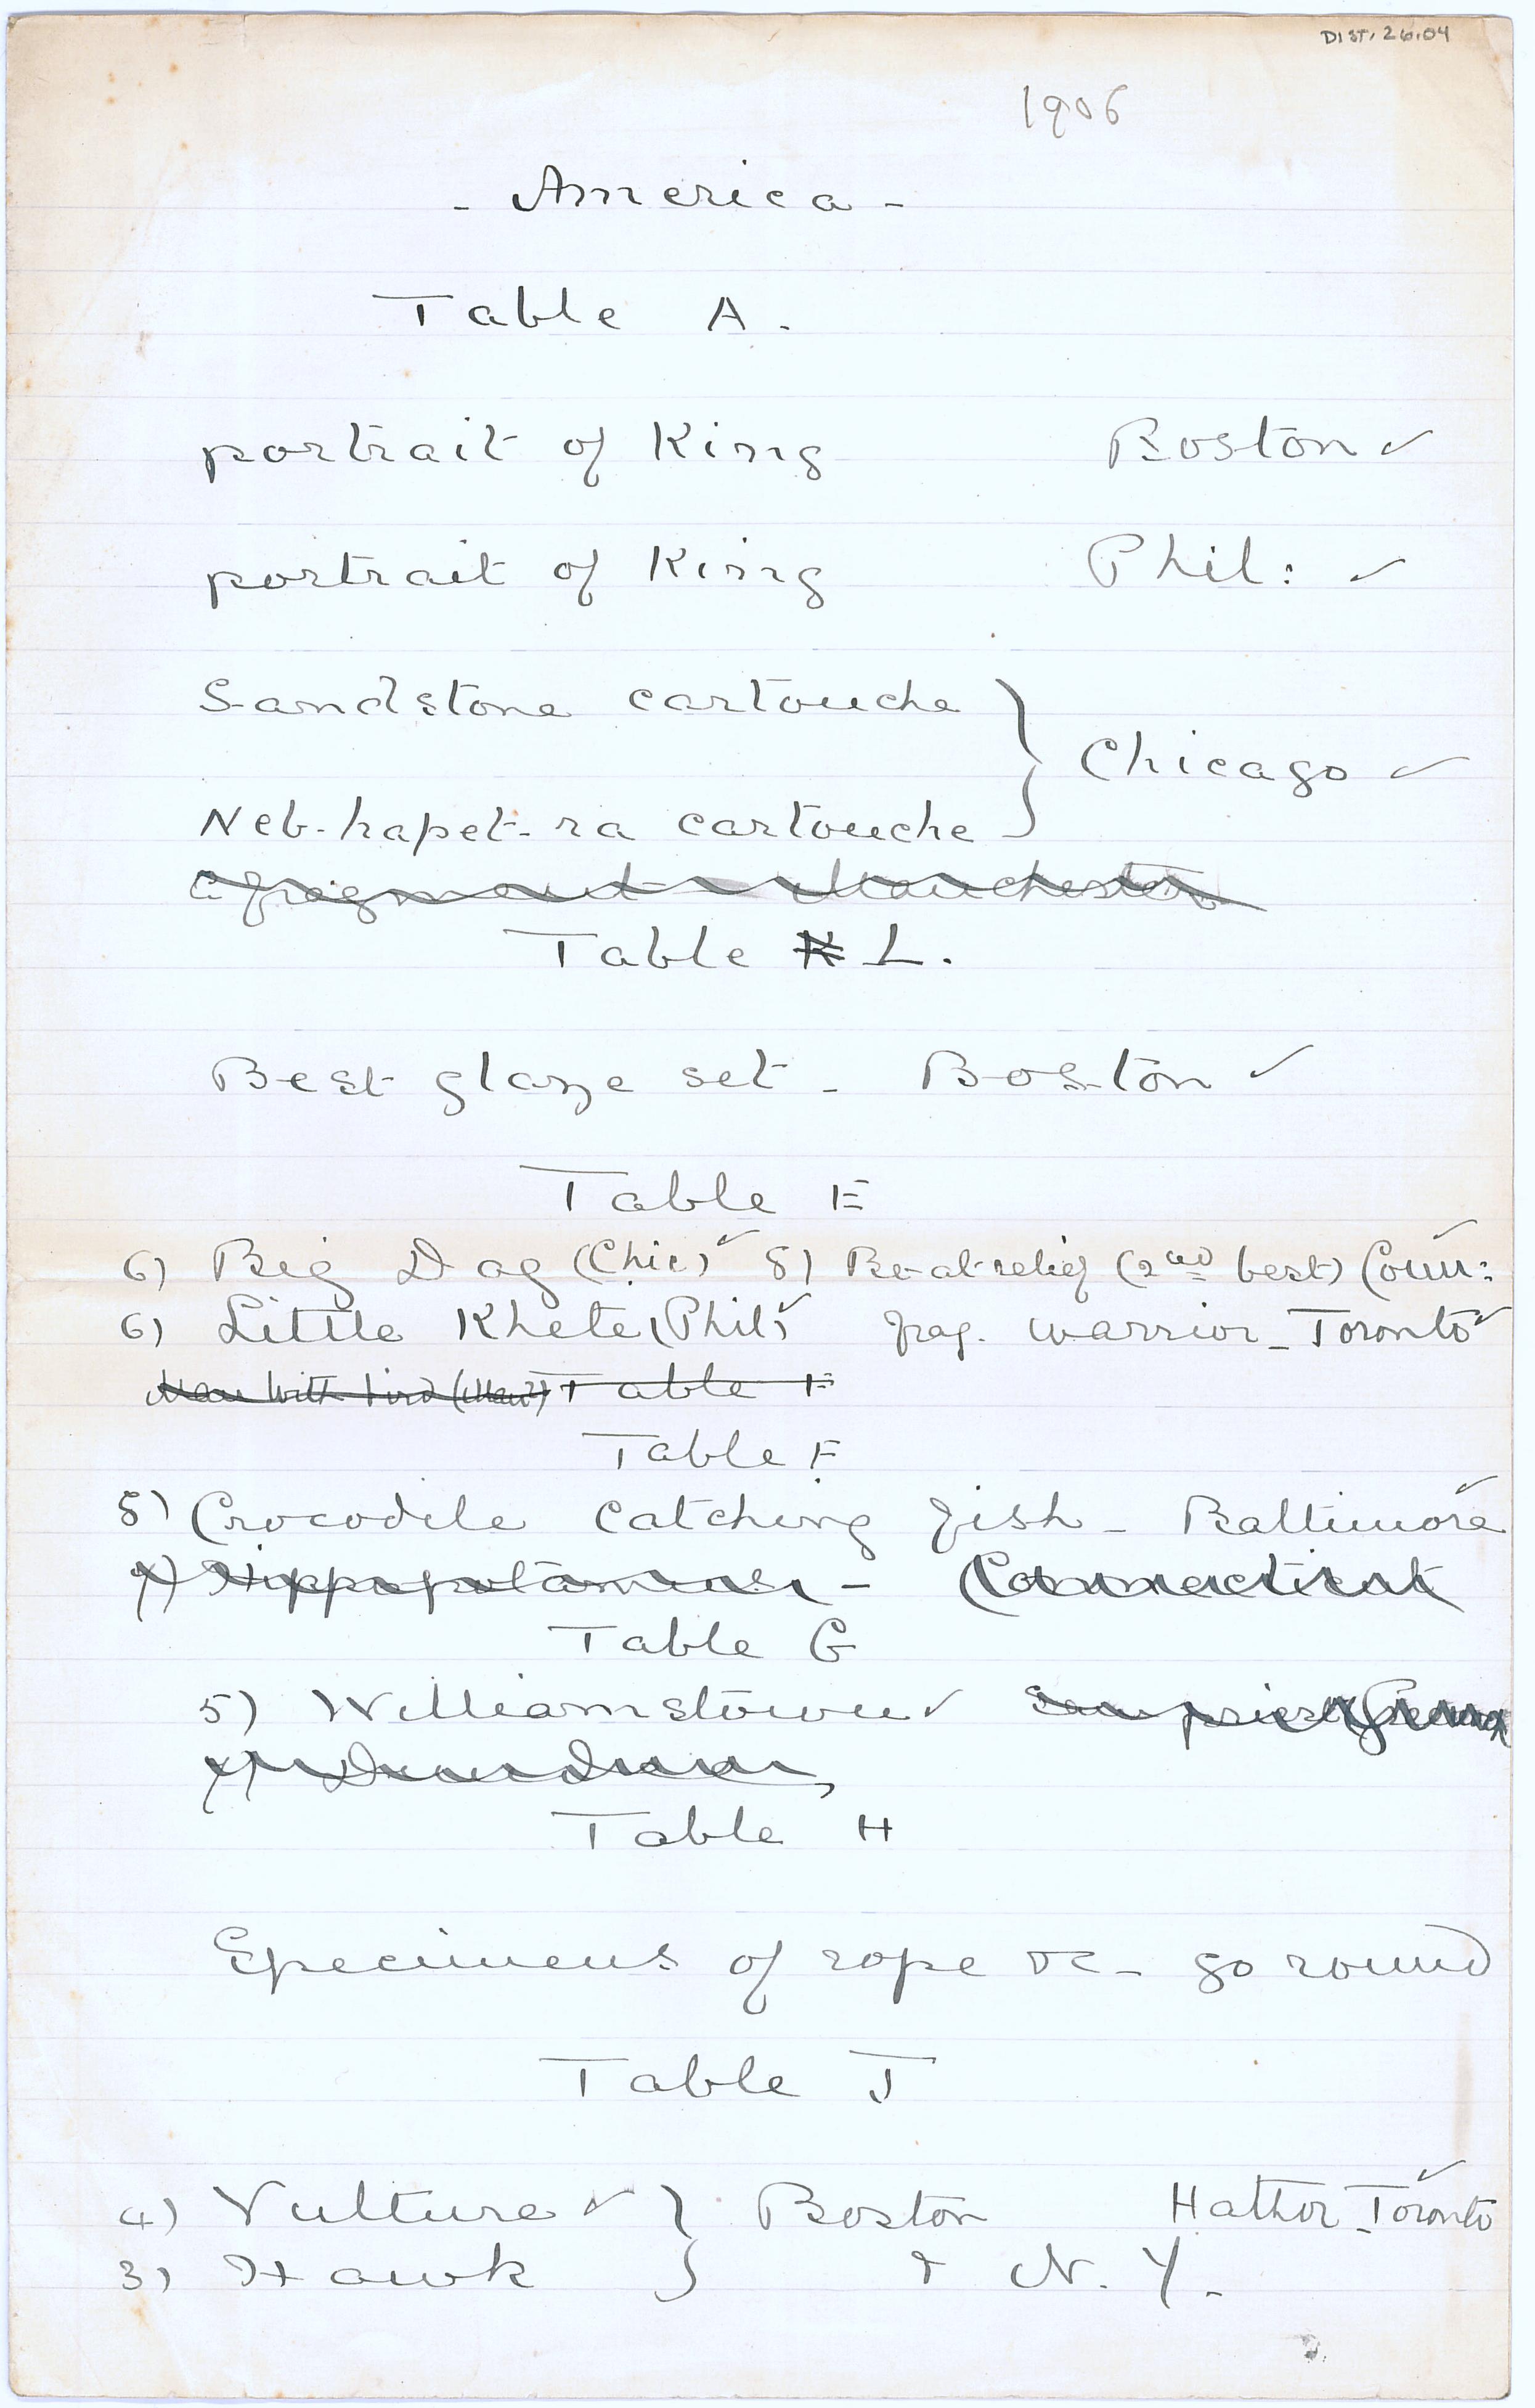 DIST. 26.04
1906
- America -
Table A.
portrait of King Boston ✓
portrait of King Phil: ✓
Sandstone cartouche
Chicago ✓
Neb-hapet-ra cartouche
fragment - Manchester
Table K L.
Best glaze set - Boston ✓
Table E
6) Big Dog (Chic) ✓ 8) Boat relief (2nd best) Conn: ✓
6) Little Khete (Phil) ✓ frag. warrior - Toronto ✓
Man with bird (Man) Table F
Table F
5) Crocodile catching fish - Baltimore ✓
7) Hippopotamus - Connecticut
Table G
5) Williamstown ✓
Table H
Specimens of rope &c - go round
Table J
4) Vulture ✓ } Boston Hathor - Toronto ✓
3) Hawk & N.Y.